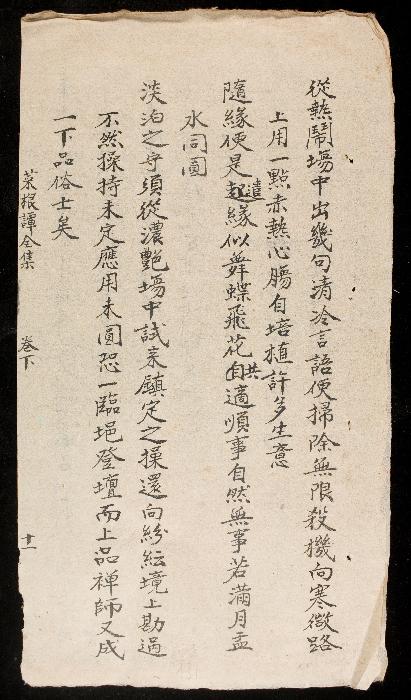 從熱鬧場中出幾句清冷言語便掃除無限殺機向寒微路
上用一點赤熱心腸自培植許多生意
隨緣便是起遣緣似舞蝶飛花自共適順事自然無事若滿月盂
水同圓
淡泊之守須從濃艷場中試來鎮定之操還向紛紜境上勘過
不然操持未定應用未圓恐一臨登壇而上品禅師又成
一下品俗士矣
菜根譚全集 卷下 十一